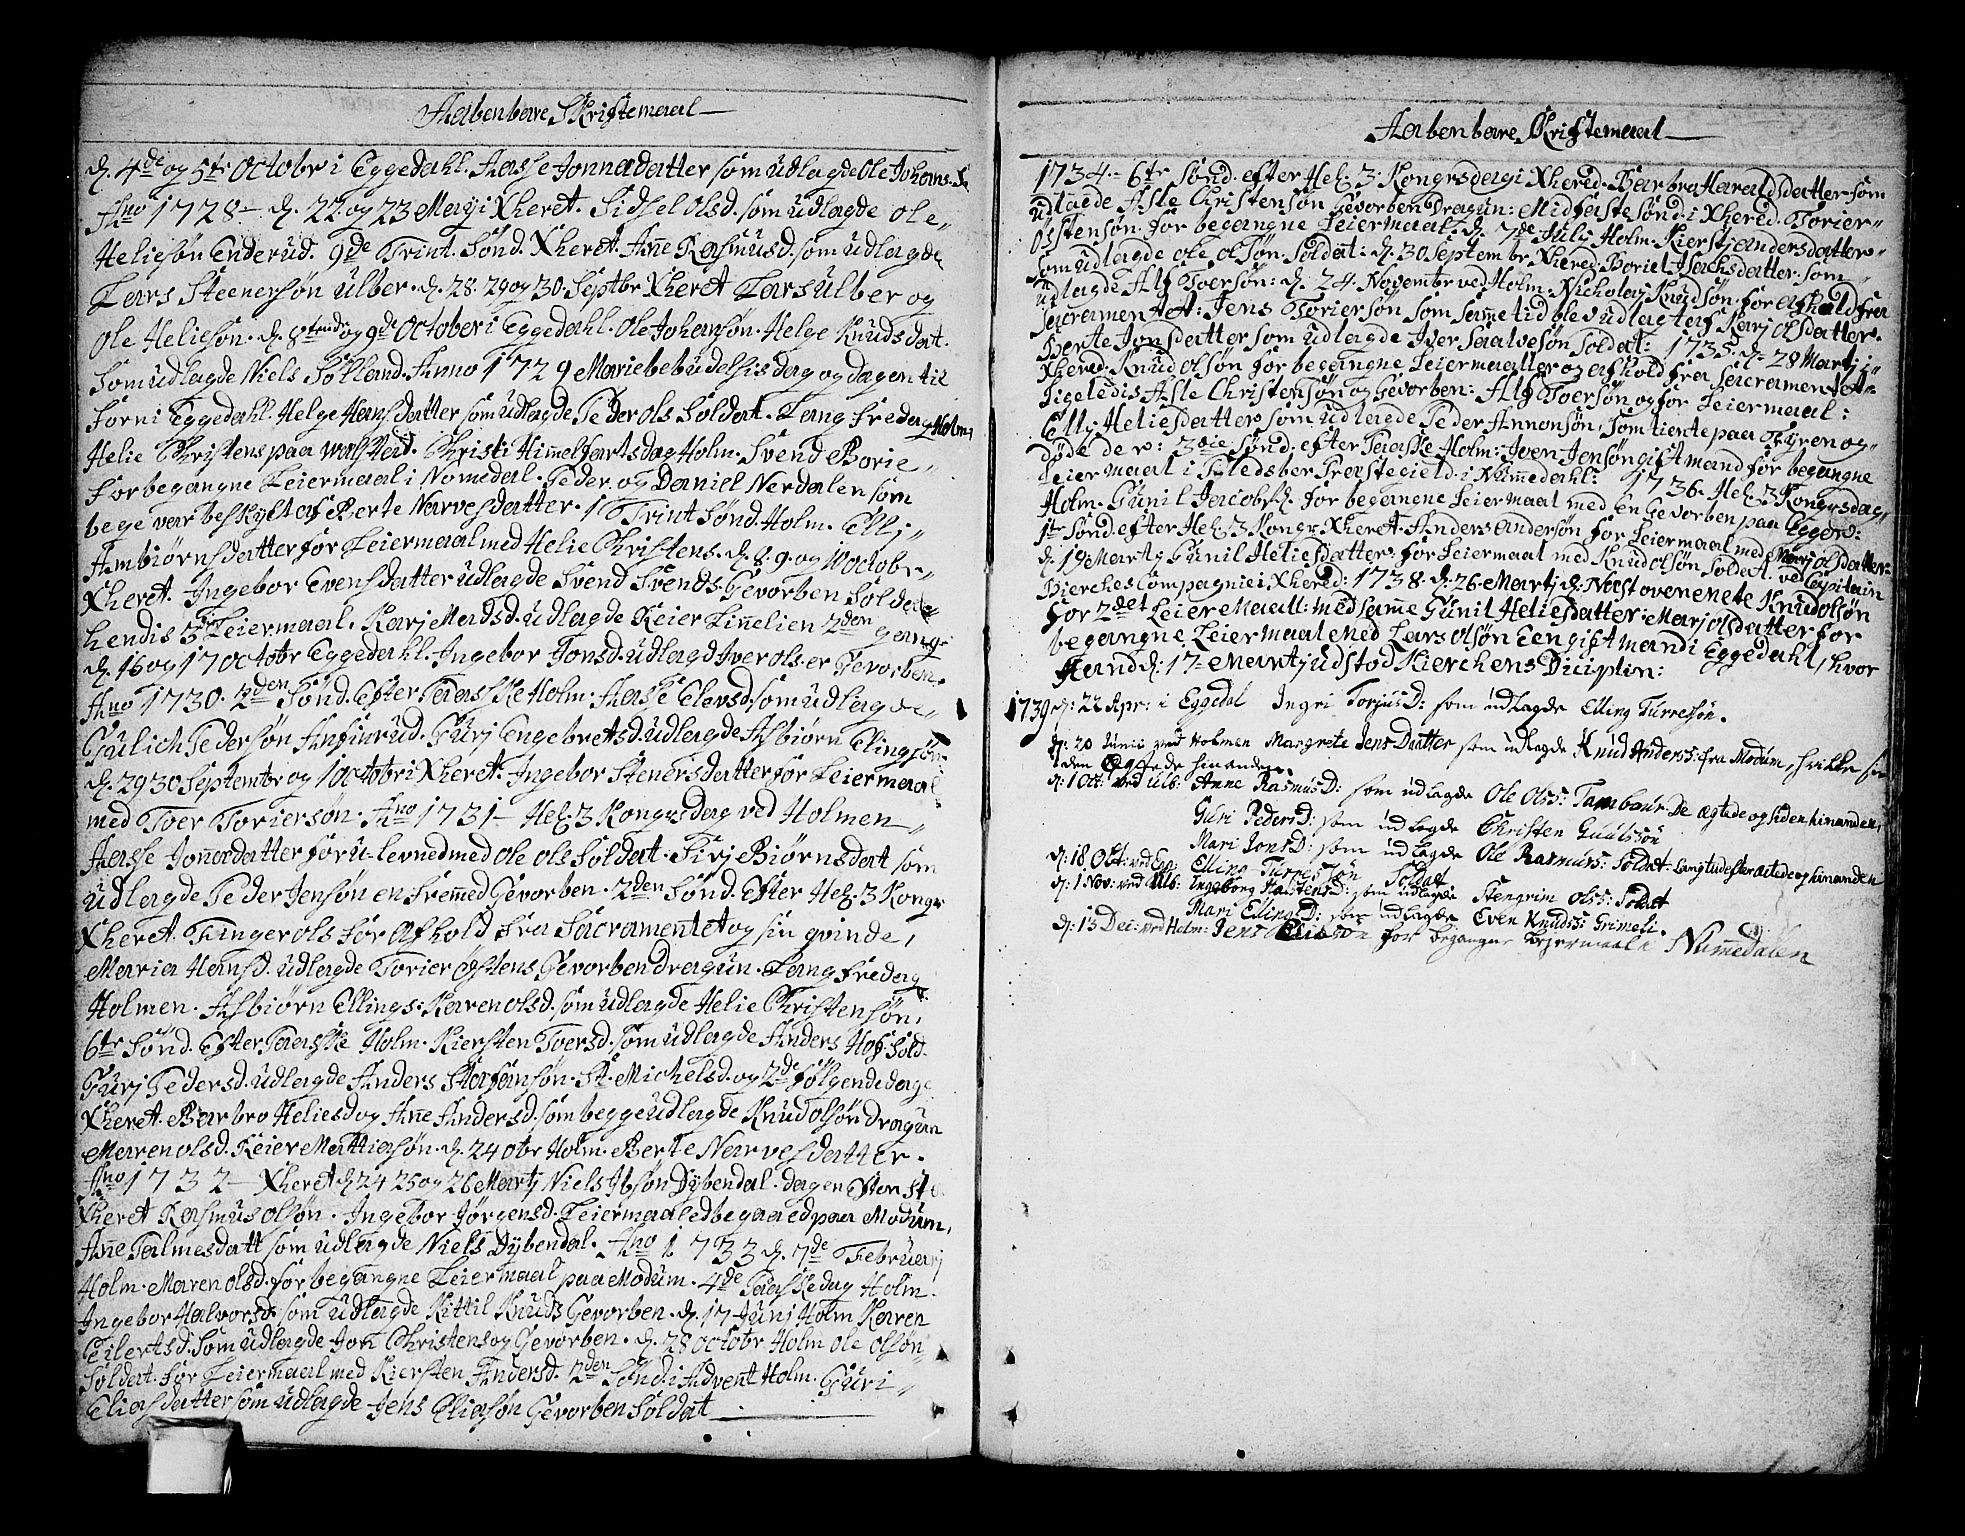 Aabenbare Skriftemaal
d. 4de og 5te Octobr i Eggedahl. Aasse Jonnadatter som udlagde Ole Johans.
Año 1728 d. 22 og 23 Maij i Xheret. Sidsel olsd. som udlagde ole
Heliesøn Enderud. 9de Trint. Sønd. Xheret. Añe Rasmusd. som udlagde
Lars Steenersøn Ulber. d. 28. 29 og 30. Septbr Xheret Lars Ulber og
Ole Heliesøn. d. 8tende og 9de October i Eggedahl. Ole Johansøn. Helge Knudsdat.
som udlagde Niels Solland. Anno 1729 Mariæ bebudelsis dag og dagen til
forn i Eggedahl. Helge Hansdatter som udlagde Peder ols Soldat. Lang Fredag Holm,
Helie Christens paa Walsteid. Christi Himmelfartsdag Holm. Svend Borie
for begangne Leiermaal i Nomedal. Peder og Daniel Nerdalen som
bege var beskylt af Berte Narvesdatter. 1 Trint Sønd. Holm. Ellj
Ambiørnsdatter for Leiermaal med Helie Christens. d. 8. 9. og 10 octobr
Xheret. Ingebor Evensdatter udlagde Svend Svends. Gevorben Soldat
hendis 3de Leiermaal. Karj Madsd. udlagde Keier Liñelien 2den gang.
d. 16 og 17 octobr Eggedahl. Ingebor Jonsd. udlagd Iver ols. er Gevorben.
Año 1730. 2den Sønd. Efter Paasske Holm: Aasse Elevsd. som udlagde
Gulich Pedersøn Anfinrud. Gurj Engebretsd. udlagde Asbiørn Elingsøn
d. 29 30 Septembr og 1 octobr i Xheret. Ingebor Stenersdatter for Leiermaal
med Toer Toriersøn. Año 1731 Hel. 3 Kongrs dag ved Holmen
Aasse Joñadatter for u-levned med ole ols Soldat. Sirj Biørnsdat som
Udlagde Peder Jensøn en fremmed Gevorben. 2den Sønd. Efter Hel. 3 Kongr
Xheret. Finger ols for Afhold fra Sacramentet og sin qvinde,
Maria Hansd. udlagde Torier ostens Gevorben Dragun. Lang fredag
Holmen. Asbiørn Ellings. Karen olsd. som udlagde Helie Christensøn,
6te Sønd. Efter Paasske Holm. Kiersten Toersd. som udlagde Anders Hof. Sold.
Gurj Pedersd. udlagde Anders Stafansøn. St. Michelsd. og 2de følgende dage
Xheret. Barbro Heliesd og Añe Andersd. som begge udlagde Knud olsøn Dragun
Maren olsd. Keier Mattiasøn. d. 24 obr Holm. Berte Narvesdatter.
Año 1732 Xheret d 24 25 og 26 Martj Niels Ibsøn Dybendal. dagen
Xheret Rasmus olsøn. Ingebor Jørgensd. Leiermaaled begaaed paa Modum,
Añe Palmesdatt som udlagde Niels Dybendal. Año 1733 d. 7de Februarj
Holm. Maren olsd. for begangne Leiermaal paa Modum. 4de Paaskedag Holm.
Ingebor Halvorsd. som udlagde Kittil Knuds Gevorben. d. 17 Junj Holm Karen
Eilertsd. som udlagde Jon Christens og Gevorben. d. 28 octobr Holm ole olsøn
Soldat. for Leiermaal med Kiersten Andersd. 2den Sønd i Advent Holm. Guri
Eliasdatter som udlagde Jens Eliasøn Gevorben Soldat
Aabenbare Skriftemaal
1734. 6te Sønd. efter Hel. 3. Kongrsdag i Xhered. Barbra Haraldsdatter som
udlaede Asle Christensøn Gevorben Dragun: Midfaste sønd. i Xhered. Torier
Ostensøn for begangne Leiermaal. d. 7de Julj Holm. Kierstj andersdatter
som udlagde ole olsøn Soldat: d. 30 Septembr Xhered. Boriel Isachsdatter som
udlagde Alf Toersøn: d. 24. Novembr ved Holm. Nicholaj Knudsøn for afhold fra
Sacramentet: Jens Toriersøn som samme tid blev udlagt af Karj olsdatter.
Berte Jonsdatter som udlagde Iver Saalvesøn Soldat: 1735. d. 28 Martj i
Xhered. Knud olsøn for begangne Leiermaaller og afhold fra Sacramentet
Ligeledis Asle Christensøn og Gevorben: Alf Toersøn og for Leiermaal:
Ellj Heliesdatter som udlagde Peder Annonsøn, som tiente paa Fyren og
døde der: 3die sønd. efter Paaske Holm: Iven Jensøn gift mand for begangne
Leiermaal i Fledsber Præstegield i Numedahl: 1736. Hel. 3 Kongrsdag
Holm. Gunil Jacobsd. for begangne Leiermaal med en Gevorben paa Egger:
1te Sønd. efter Hel. 3 Kongr. Xheret. Anders andersøn for Leiermaal med Marj olsdatter
d. 19 Martj Gunil Heliesdatter for Leiermaal med Knud olsøn Soldat. ved Capitain
Bierches Compagnie i Xhered: 1738. d. 26 Martj d. Næst ovenmelte Knud olsøn
for 2det Leiermaall: med samme Gunil Heliesdatter: Marj olsdatter for
begangne Leiermaal med Lars olsøn Een gift mand i Eggedahl, hvor
hand d. 17 Martj udstod Kierchens Diciplin:
1739 d: 22 Apr: i Eggedal Ingri TorjusD: som udlagde Elling Turresøn.
d: 20 Junii ved Holmen Margrete JensDatter som udlagde Knud Anderss: fra Modum, hvilke
den Egtede hinanden.
d: 1 Oct: ved Ulb: Anne RasmusD: som udlagde Ole Olss: Tambour. De ægtede og siden hinanden,
Guri PedersD: som udlagde Christen Gulbssøn
Mari JonsD: som udlagde Ole Rasmuss: Soldat. Langt udefter ætede og hinanden
d: 18 Obt: ved Egg: Elling Turresøn Soldat
d: 1 Nov: ved Ulb: Ingeborg HalstensD: som udlagde Stengrim Olss: Soldat
Mari EllingsD: som udlagde Even Knudss: Grimeli.
d: 13 Dec: ved Holm: Jens for begangne Lejermaal i Numedalen